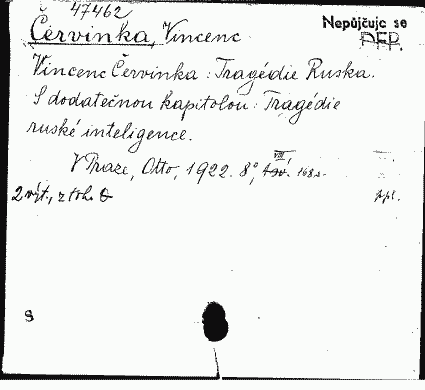 47462
Nepůjčuje se
DEP.
Červinka, Vincenc
Vincenc Červinka: Tragédie Ruska.
S dodatečnou kapitolou: Tragédie
ruské inteligence.
V Praze, Otto, 1922. 8°, VIII, 168 s.
2 výt., z toho
ppl.
8